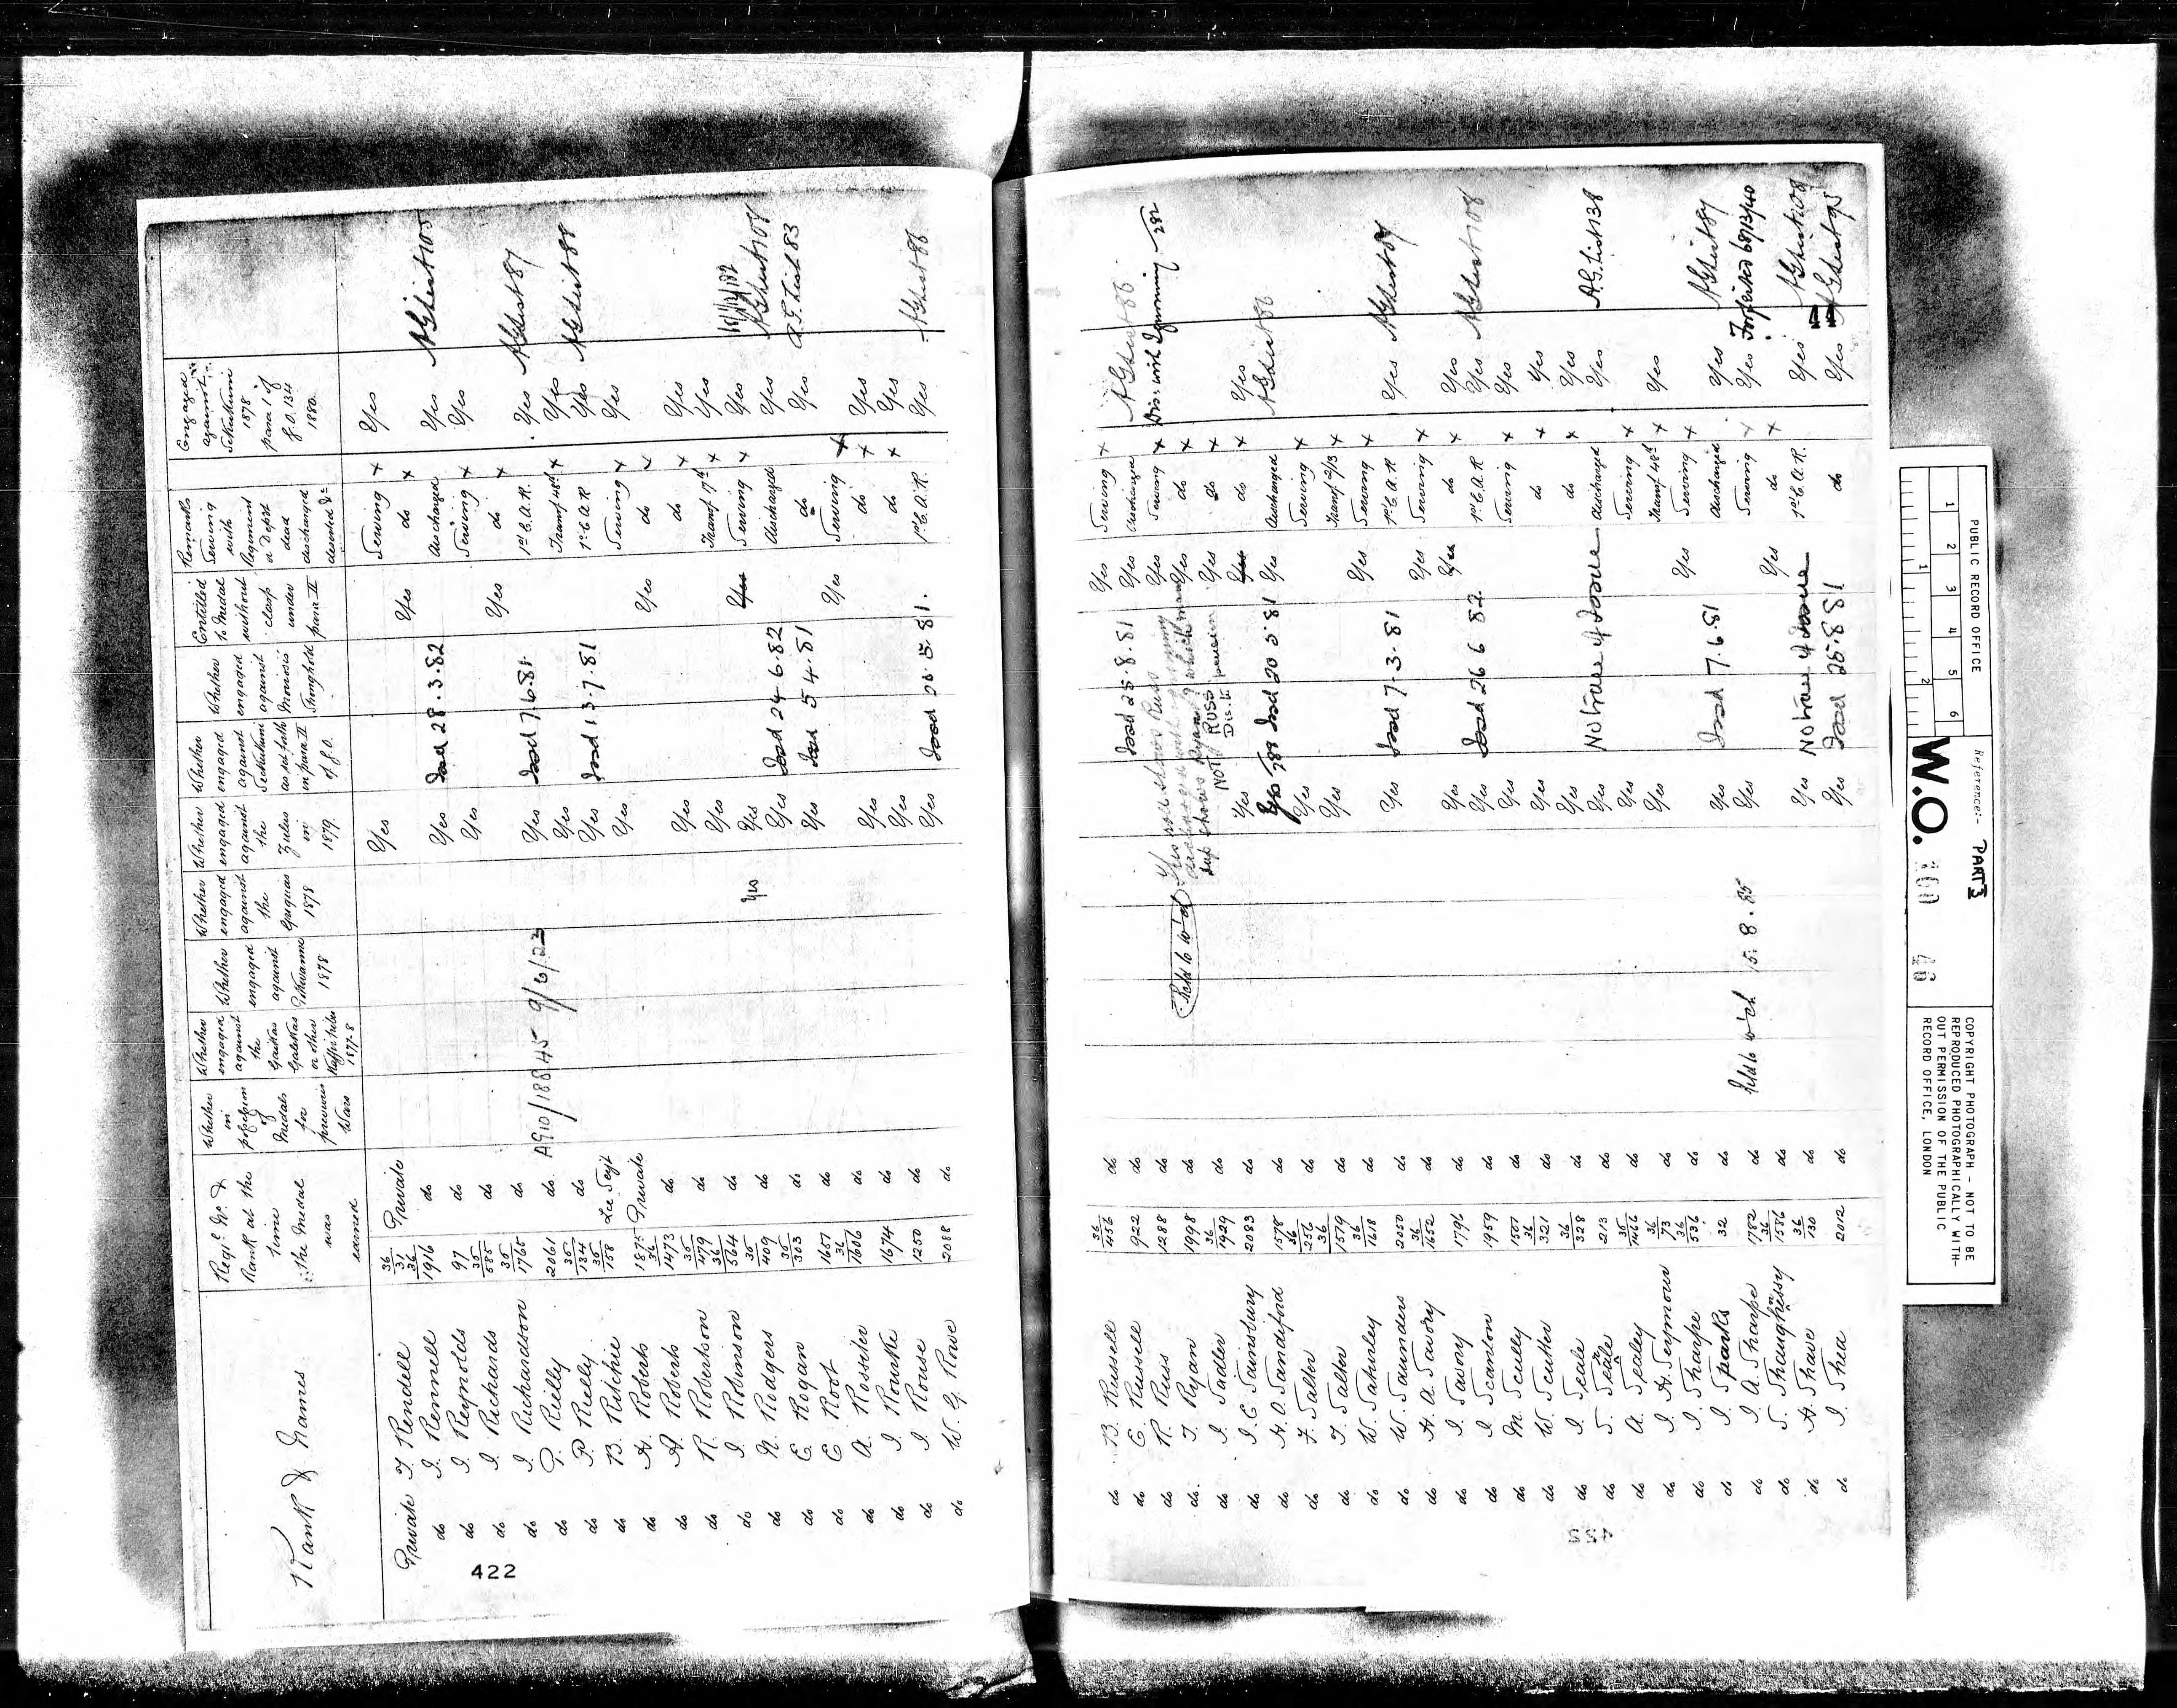 Rank & Names
Regl. No. & Rank at the time the Medal was earned
Whether in possession of Medals for previous Wars
Whether engaged against the Gaikas Galekas or other Kaffir tribes 1877-8
Whether engaged against Pokwanne 1878
Whether engaged against the Griquas 1878
Whether engaged against the Zulus in 1879
Whether engaged against Sekukuni as set forth in para II of G.O.
Whether engaged against Moirosi's Stronghold
Entitled to Medal without clasp under para II
Remarks Serving with Regiment or Depôt dead discharged deserted &c
Engaged against Sekukuni 1878 para 1 of G.O. 134 1880.
Private T. Rendell 36/31 Private Yes Serving x Yes
do J. Rennell 36/1916 do Yes do x
do J. Reynolds 97 do Yes Issd 28.3.82 discharged Yes AG List 105
do J. Richards 35/685 do Yes Serving x Yes
do J. Richardson 35/1765 do Yes do x
do P. Reilly 2061 do AG10/188/45 9/6/23 Yes Issd 7.6.81. 1st C.A.R. Yes AG List 87
do P. Reilly 35/134 do Yes Transf 48th x Yes
do B. Ritchie 35/158 Lce Sergt Yes Issd 13.7.81 1st C.A.R Yes AG List 88
do H. Roberts 1875 Private Yes Serving x Yes
do A. Roberts 36/1473 do Yes do
do R. Robertson 35/479 do Yes do x Yes
do J. Robinson 36/564 do Yes Transf 17th x Yes
do N. Rodgers 35/409 do Yes Yes Serving x Yes
do E. Rogan 35/303 do Yes Issd 24.6.82 discharged Yes AG List 108
do E Root 1607 do Yes Issd 5 4.81 do Yes A.G. List 83
do A. Rosseter 36/1606 do Yes Serving x
do J. Rourke 1674 do Yes do x Yes
do J. Rouse 1250 do Yes do x Yes
do W. G. Rowe 2088 do Yes Issd 20.5.81. 1st C.A.R. Yes AG List 86
422
do B. Russell 36/456 do Yes Serving x
do E. Russell 922 do Issd 25.8.81 Yes discharged
do R. Russ 1288 do Yes Serving x Dis: with Ignominy
do T. Ryan 1998 do Retd to W'ch Yes do x
do J. Sadler 36/1929 do Yes do x
NOT RUSS
do J. C. Sainsbury 2083 do Yes do x Yes
do H. O. Sandiford 1578 do Yes Issd 20 5.81 Yes discharged AG List 86
do F. Salter 36/256 do Yes Serving x
do T. Salter 36/1579 do Yes Transf 2/3 x
do W. Sahnley 36/1618 do Yes Serving x
do W. Saunders 2050 do Yes Issd 7.3.81 1st C.A.R Yes AG List 84
do H. A. Savory 36/1652 do Yes Serving x
do J. Savory 1796 do Yes Yes do x Yes
do J. Scanlon 1959 do Yes Issd 26 6 82. 1st C.A.R Yes AG List 108
do M. Scully 1507 do Yes Serving x Yes
do W. Scutter 36/321 do Yes do x Yes
do J. Seale 36/328 do Yes do x Yes
do S. Seale 213 do Yes NO trace of Issue discharged Yes A.G. List 138
do A. Sealey 35/1466 do Yes Serving x
do J. H. Seymour 36/73 do Yes Transf 48th x Yes
do J. Sharpe 36/536 do Yes Serving x
do J. Sparks 32 do Yes Issd 7.6.81 discharged Yes AG List 87
do J. A. Sharpe 1782 do Retd to W'ch 15.8.85 Yes Serving x Yes Forfeited 68/13/40
do S. Shaughnessy 36/1586 do Yes do x
do H. Shave 36/130 do Yes NO trace of Issue 1st C.A.R. Yes AG List 108
do J. Shea 2012 do Yes Issd 25.8.81 do Yes AG List 95
PUBLIC RECORD OFFICE
1 2 3 4 5 6
1 2
Reference:-
PART 3
W.O. 100 46
COPYRIGHT PHOTOGRAPH - NOT TO BE
REPRODUCED PHOTOGRAPHICALLY WITH-
OUT PERMISSION OF THE PUBLIC
RECORD OFFICE, LONDON